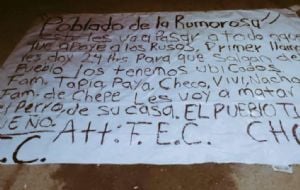 Poblado de la Rumorosa"
Esto les va a Pasar a todo aquel
que apoye a los Rusos, Primer llamado
les doy 24 Hrs Para que Salgan del
Pueblo los tenemos ubicados
Fam. Tapia, Paya, Checo, Vivi, Nacho
Fam. de Chepe Les voy a matar
el Perro, de su casa. EL PUEBLO T
EÑO. Att: F.E.C. CH
.C.